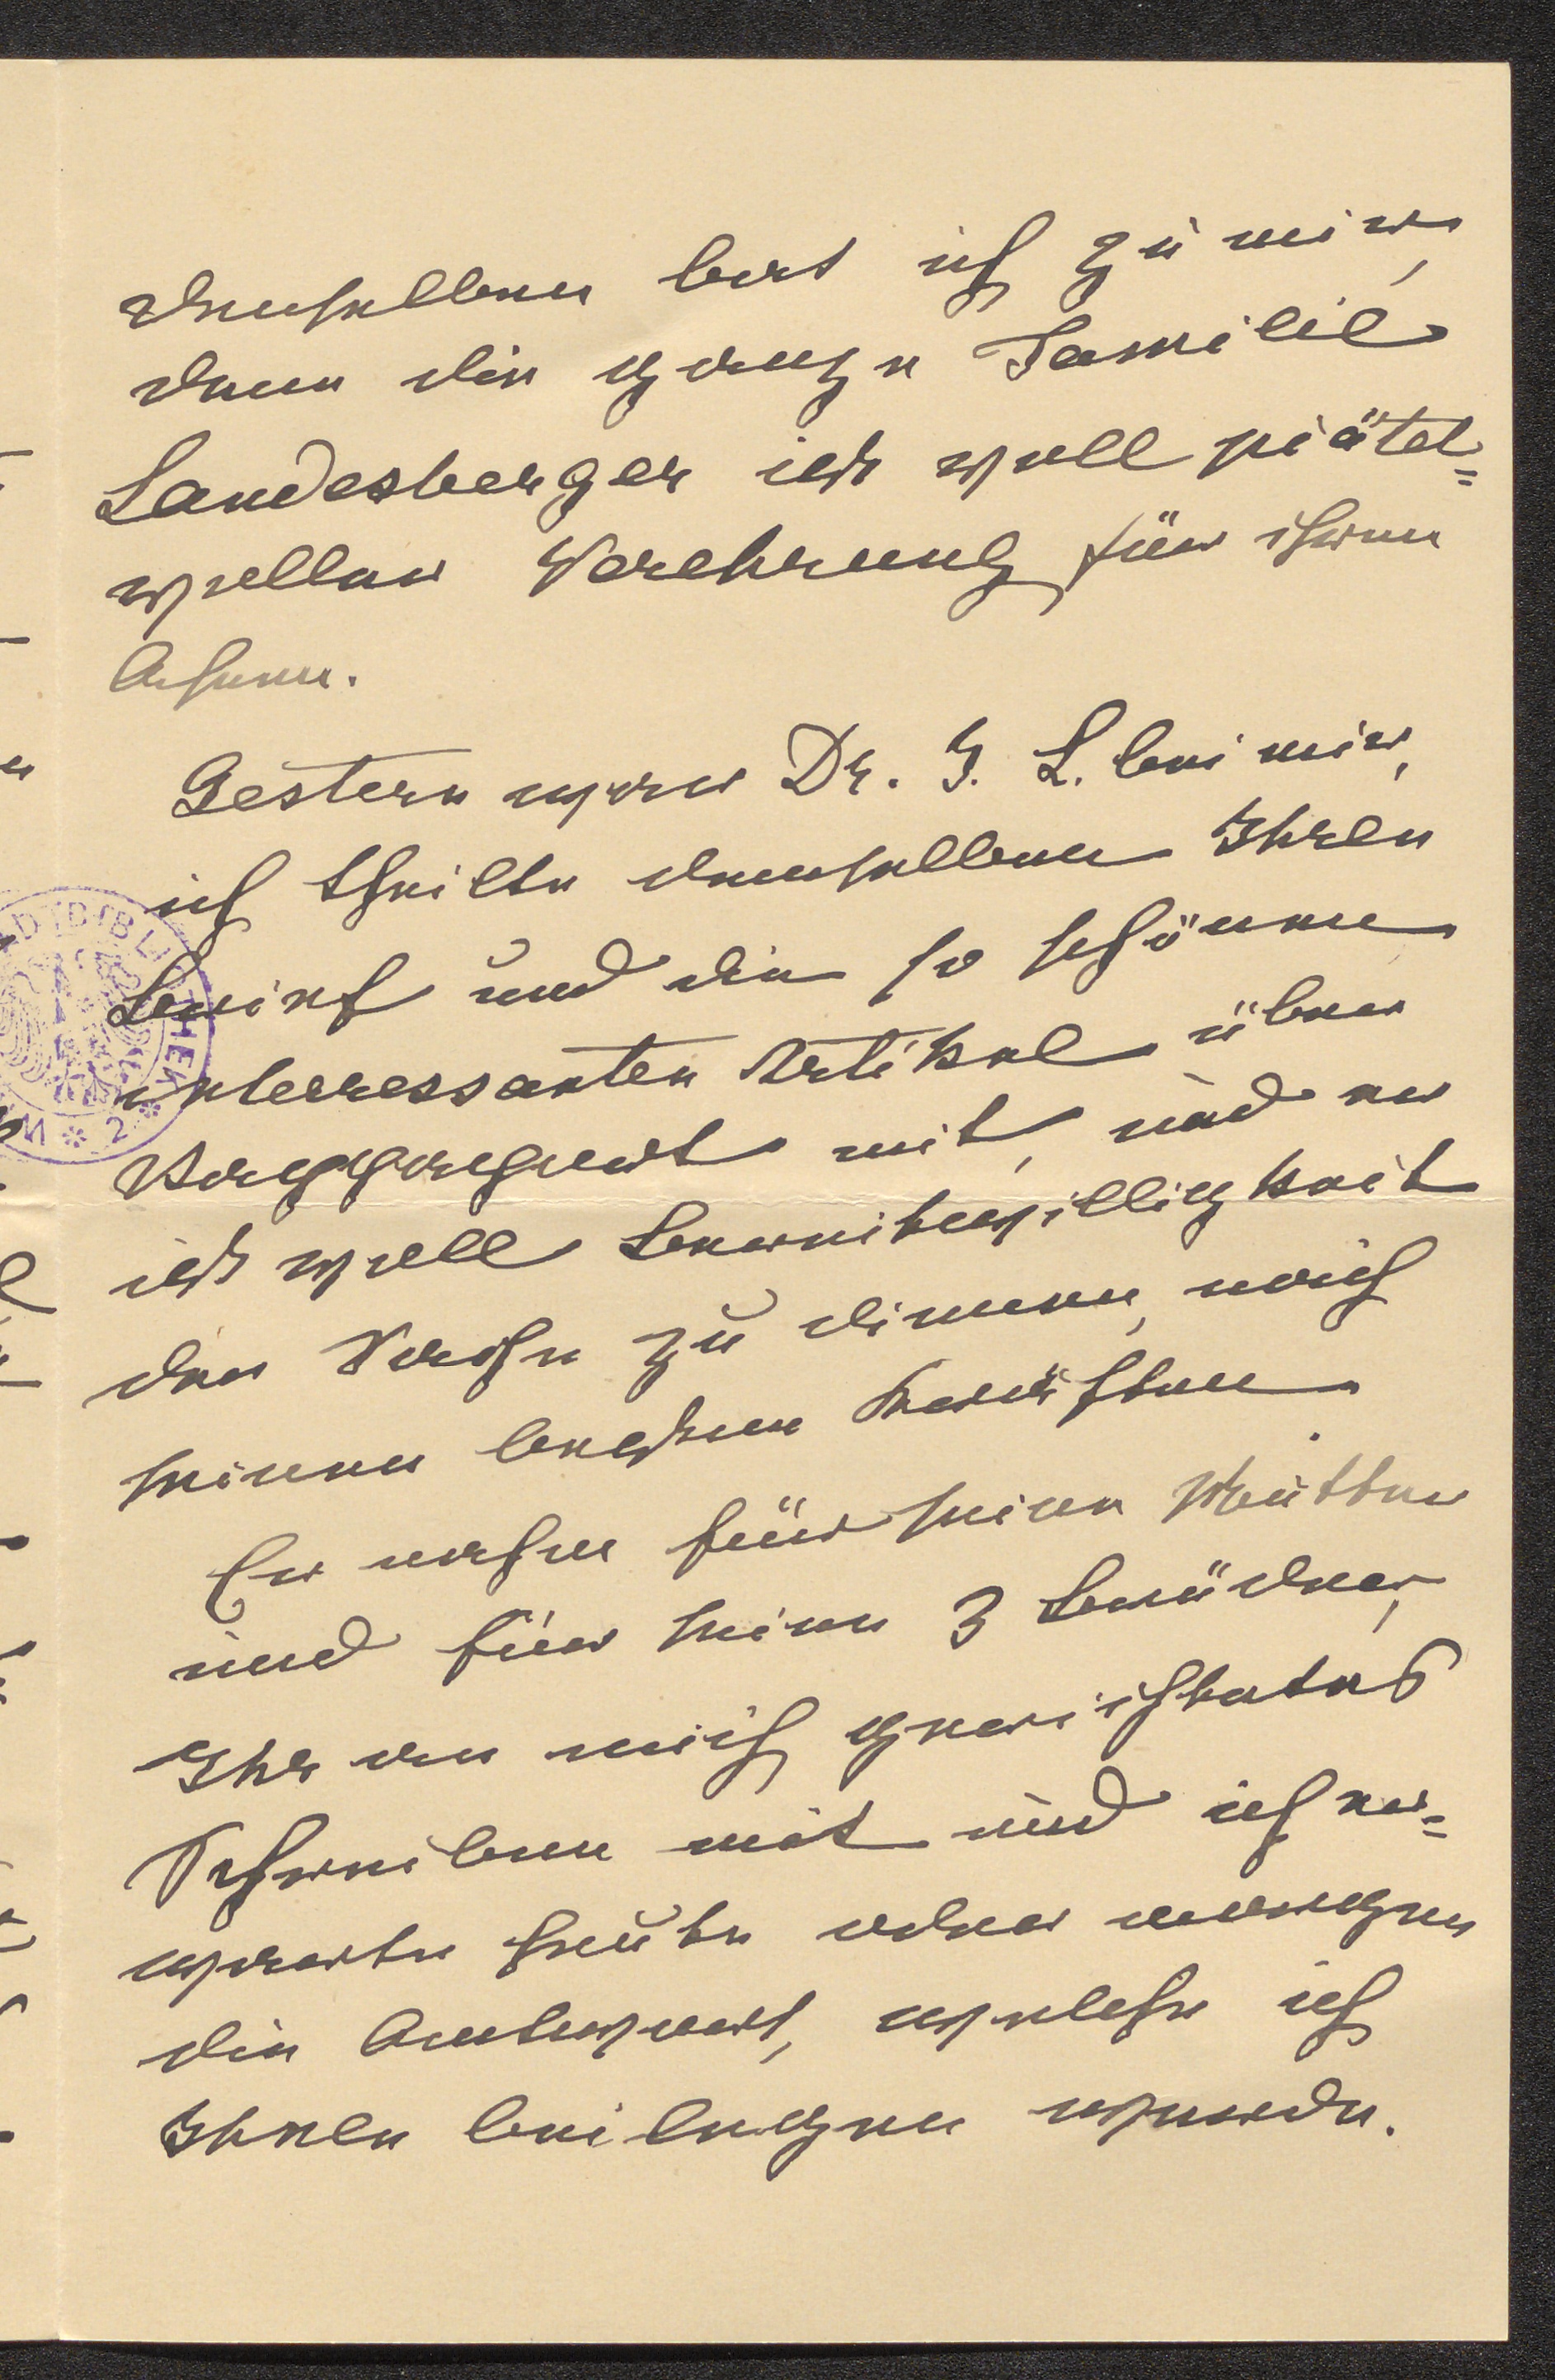 denselben bat ich zu mir,
denn die ganze Familie
Landesberger ist voll piätet=
voller Verehrung für ihren
Ahnen.
Gestern war Dr. J. L. bei mir,
ich theilte denselben Ihren
Brief und die so schönen
interressanten Artikel über
mit, und er
ist voll Bereitwilligkeit
der Sache zu dienen, nach
seinen besten Kräften.
Er nahm für seine Mutter
und für seine 3 Brüder,
Ihr an mich gerichtetes
Schreiben mit und ich er=
warte heute oder morgen
die Antwort, welche ich
Ihnen beilegen werde.